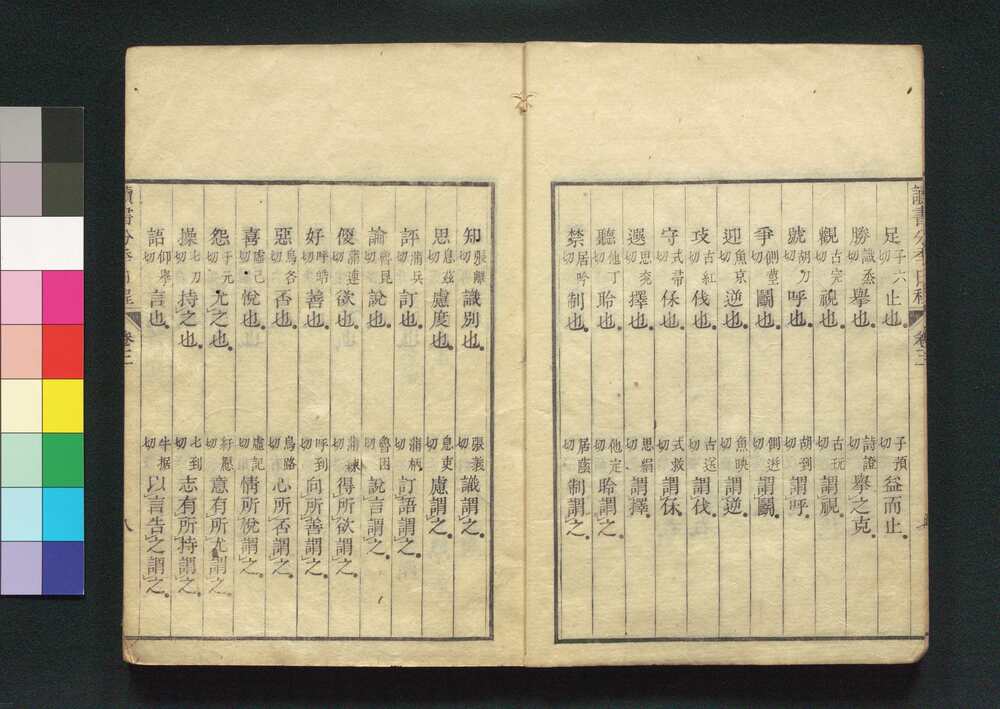 讀書分年日程 卷三
足 子六切 止也 子預切 益而止
勝 識烝切 擧也 詩證切 擧之克
觀 古完切 視也 古玩切 謂視
號 胡刀切 呼也 胡到切 謂呼
爭 側莖切 鬭也 側迸切 謂鬭
迎 魚京切 逆也 魚映切 謂逆
攻 古紅切 伐也 古送切 謂伐
守 式帚切 保也 式救切 謂保
選 思兖切 擇也 思絹切 謂擇
聽 他丁切 聆也 他定切 聆謂之
禁 居吟切 制也 居蔭切 制謂之
知 張離切 識別也 張義切 識謂之
思 息茲切 慮度也 息吏切 慮謂之
評 蒲兵切 訂也 蒲柄切 訂語謂之
論 魯昆切 說也 魯困切 說言謂之
便 蒲連切 欲也 蒲練切 得所欲謂之
好 呼皓切 善也 呼到切 向所善謂之
惡 烏各切 否也 烏路切 心所否謂之
喜 虛己切 悅也 虛記切 情所悅謂之
怨 於元切 尤之也 紆愿切 意有所尤謂之
操 七刀切 持之也 七到切 志有所持謂之
語 仰擧切 言也 牛据切 以言告之謂之
讀書分年日程 卷三 八